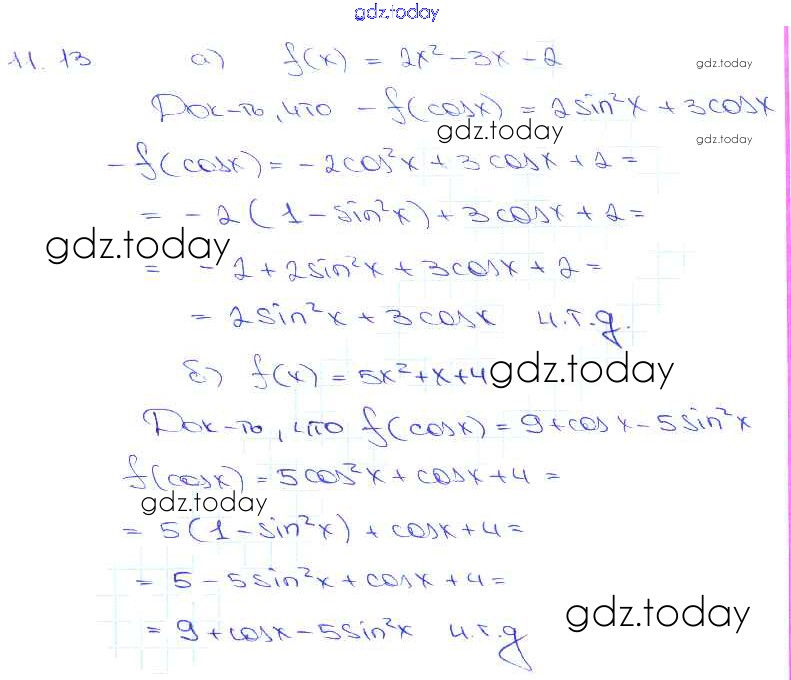 gdz.today
11.13 а) f(x) = 2x² - 3x - 2
gdz.today
Док-ть, что - f(cosx) = 2sin²x + 3cosx
gdz.today
gdz.today
- f(cosx) = - 2cos²x + 3cosx + 2 =
= - 2(1 - sin²x) + 3cosx + 2 =
gdz.today
= - 2 + 2sin²x + 3cosx + 2 =
= 2sin²x + 3cosx ч.т.д.
б) f(x) = 5x² + x + 4
gdz.today
Док-ть, что f(cosx) = 9 + cosx - 5sin²x
f(cosx) = 5cos²x + cosx + 4 =
gdz.today
= 5(1 - sin²x) + cosx + 4 =
= 5 - 5sin²x + cosx + 4 =
gdz.today
= 9 + cosx - 5sin²x ч.т.д